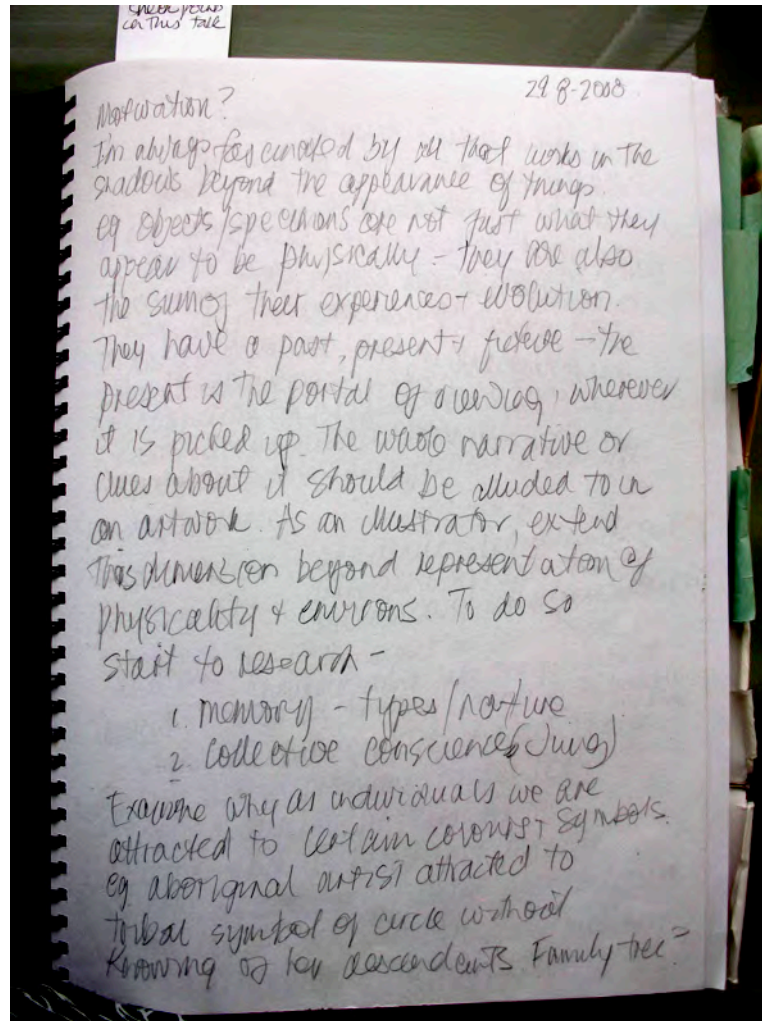 on this talk
29-8-2008
Motivation?
I'm always fascinated by all that works in the
shadows beyond the appearance of things.
eg objects/specimens are not just what they
appear to be physically - they are also
the sum of their experiences + evolution.
They have a past, present + future - the
present is the portal of viewing, wherever
it is picked up. The whole narrative or
clues about it should be alluded to in
an artwork. As an illustrator, extend
this dimension beyond representation of
physicality + environs. To do so
start to research -
1. memory - types/nature
2. collective conscience (Jung)
Examine why as individuals we are
attracted to certain colours + symbols.
eg aboriginal artist attracted to
tribal symbol of circle without
knowing of her descendents Family tree?